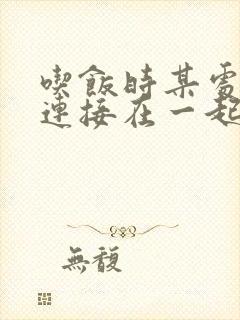 喫飯時某處
連接在一起
無馥